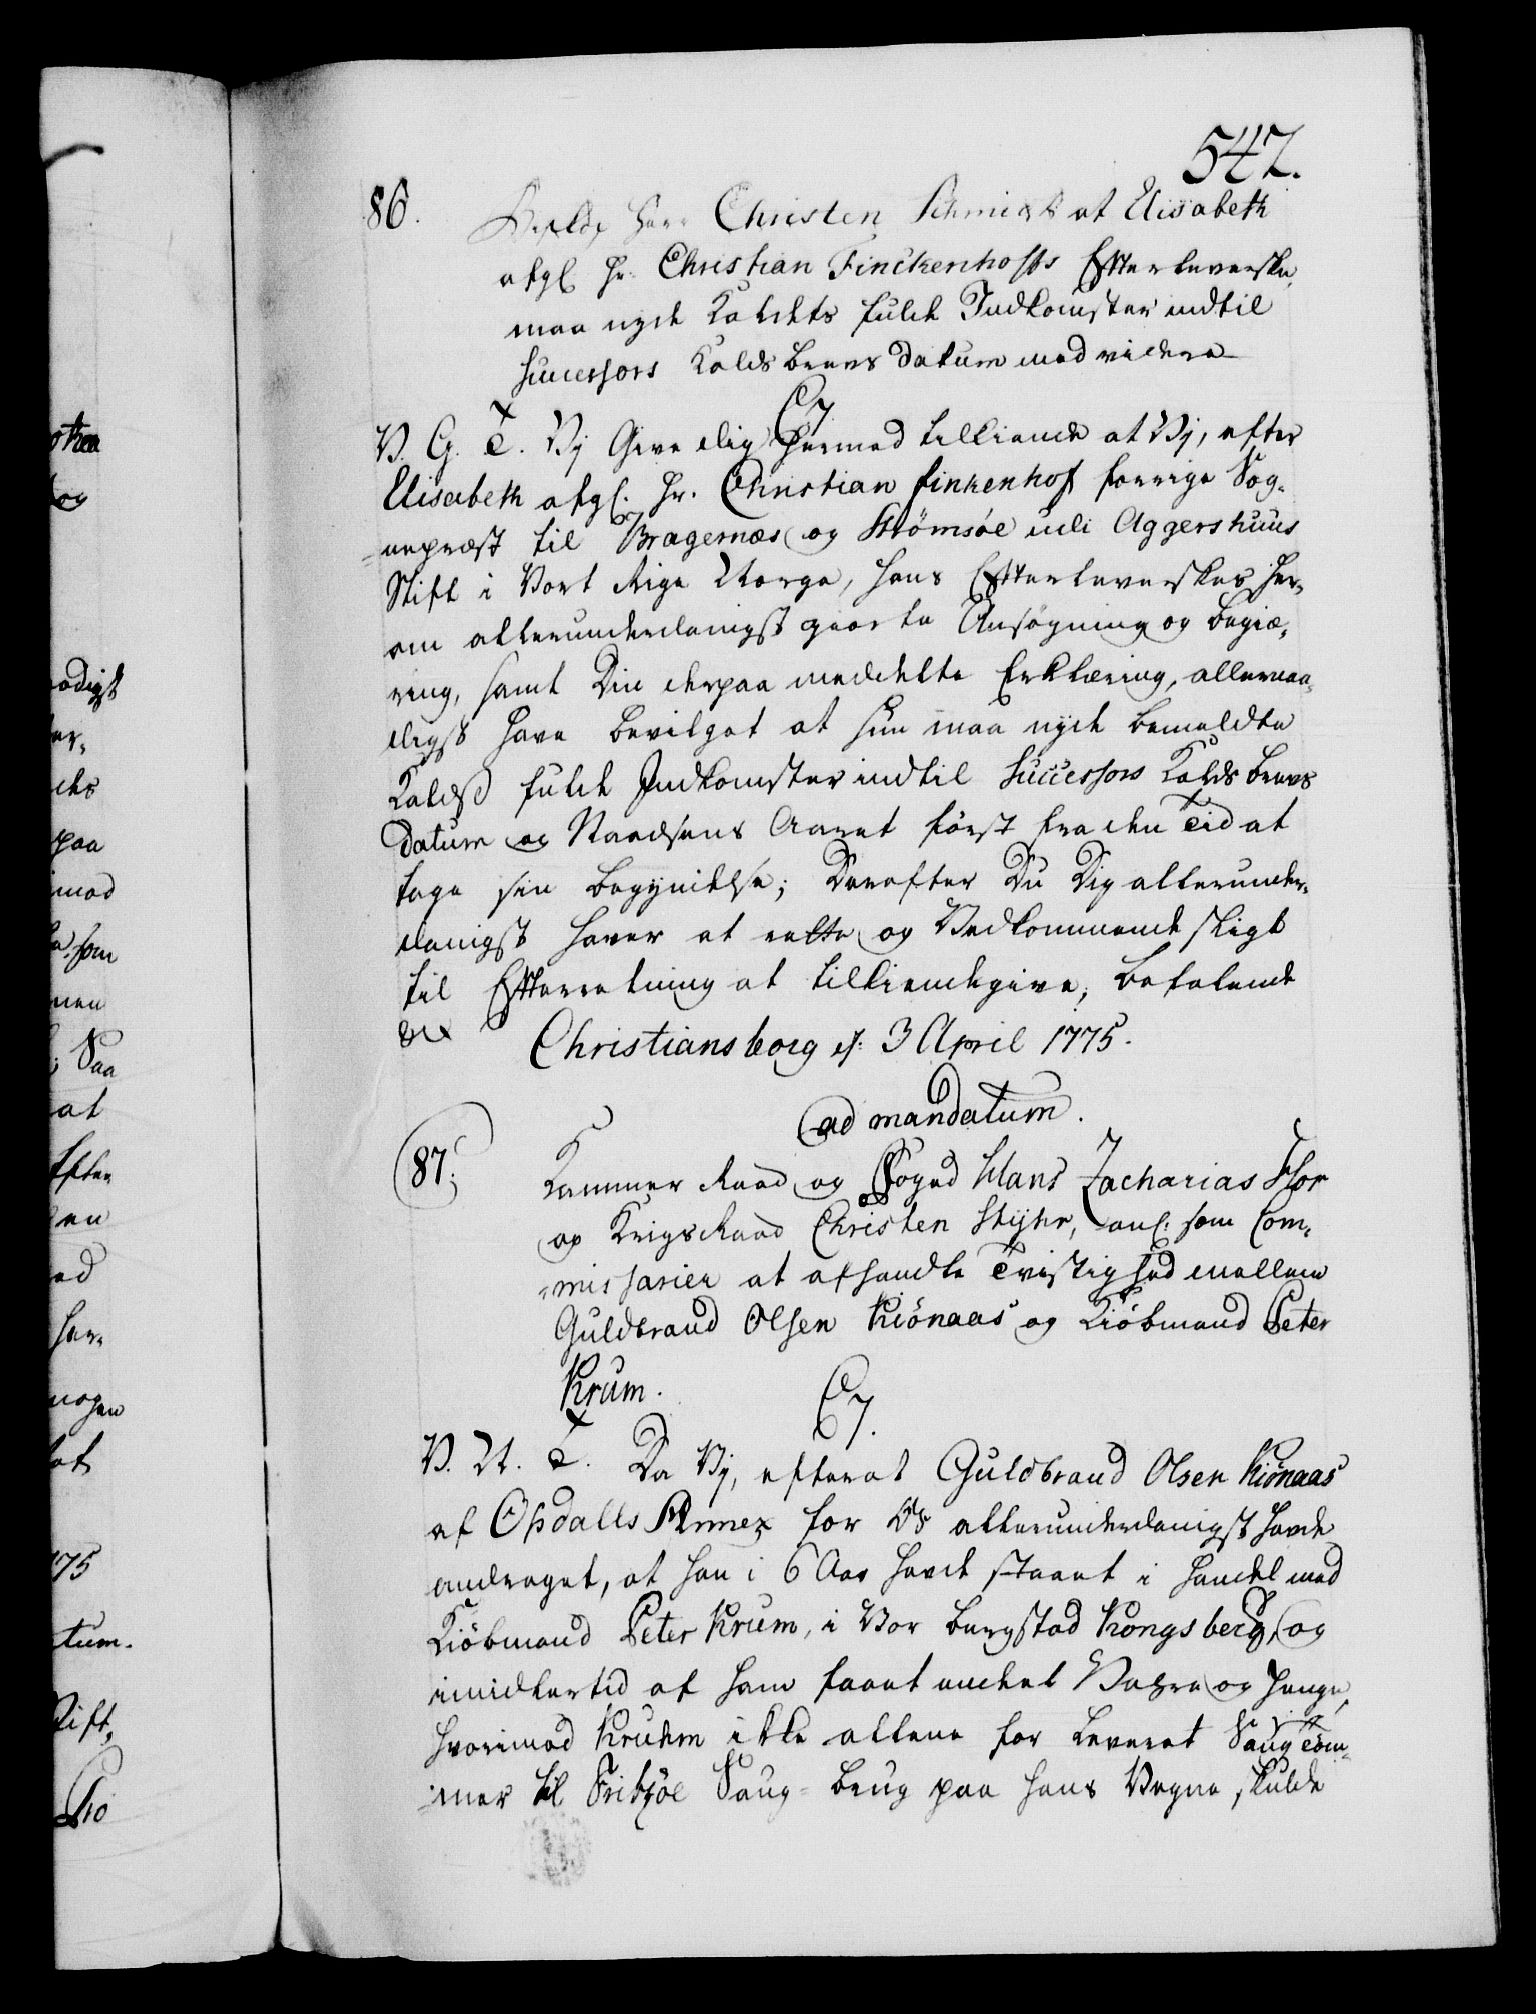 542.
86. Herr Christen Schmidt at Elisabeth
afgl. Hr. Christian Finckenhofs Efterleverske
maa nyde Kaldets fulde Indkomster indtil
Successors Kalds brevs Datum med videre
C7
V. G. T. Vj Give dig hermed tilkiende at Vj, efter
Elisabeth afgl. Hr. Christian finkenhof forrige Sog-
nepræst til Bragernæs og Strømsøe udi Aggershuus
Stift i Vort Rige Norge, hans Efterleverskes her-
om allerunderdanigst giorte Ansøgning og begiæ-
ring, samt Din derpaa meddelte Erklæring, allernaa-
digst have bevilget at hun maa nyde bemeldte
Kalds fulde Indkomster indtil Successors Kalds brevs
Datum og Naadsens Aaret først fra den Tid at
tage sin begyndelse; Derefter Du Dig allerunder-
danigst haver at rette og Vedkommende sligt
til Efterretning at tilkiendegive, befalende
Christiansborg d: 3 April 1775.
ad mandatum.
87. Kammer Raad og Foged Hans Zacharias Flor
og Krigs Raad Christen Styhr, anl. som Com-
missarier at afhandle Tvistighed mellem
Guldbrand Olsen Kiönaas og Kiöbmand Peter
Krum.
C7.
V. G. T. Da Vj, efterat Guldbrand Olsen Kiönaas
af Opdalls Annex for Os allerunderdanigst havde
andraget, at han i 6 Aar havde staaet i handel med
Kiöbmand Peter Krum, i Vor bergstad Kongsberg, og
imidlertid af ham faaet endel Vahre og Penge,
hvorimod Kruhm ikke allene for leveret Saug Töm-
mer til Fritzöe Saug-brug paa hans Vegne, skulde